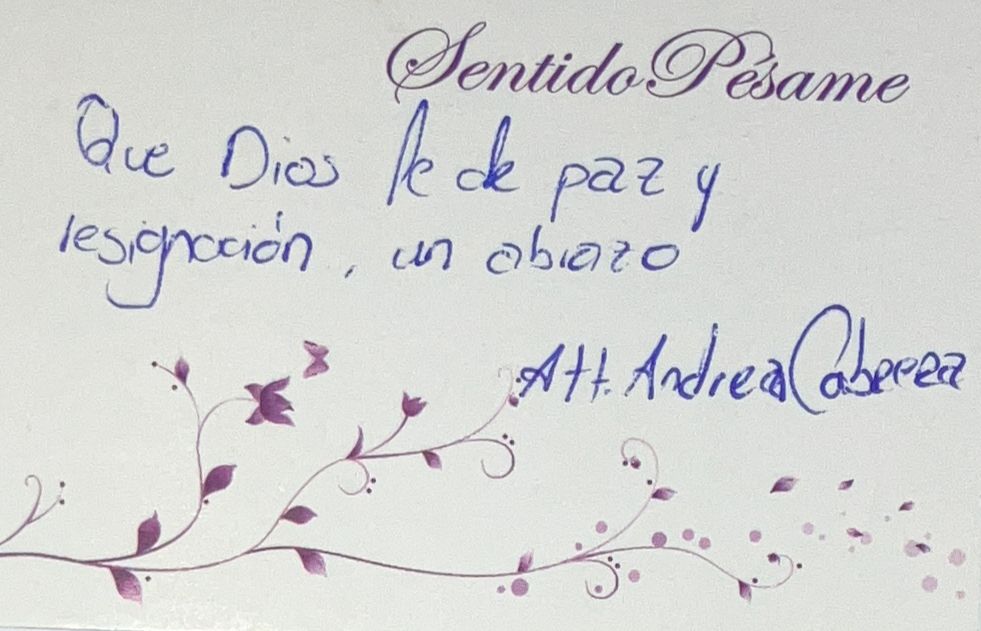 Sentido Pésame
Que Dios le de paz y
resignación, un abrazo
Att. Andrea Cabrera